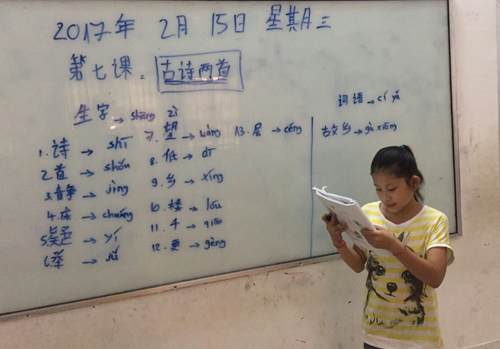 2017年 2月 15日 星期三
第七课: 古诗两首
生字 → shēng zì
1. 诗 → shī
2. 首 → shǒu
3. 静 → jìng
4. 床 → chuáng
5. 疑 → yí
6. 举 → jǔ
7. 望 → wàng
8. 低 → dī
9. 乡 → xiāng
10. 楼 → lóu
11. 千 → qiān
12. 更 → gèng
13. 层 → céng
词语 → cí yǔ
故乡 → gù xiāng